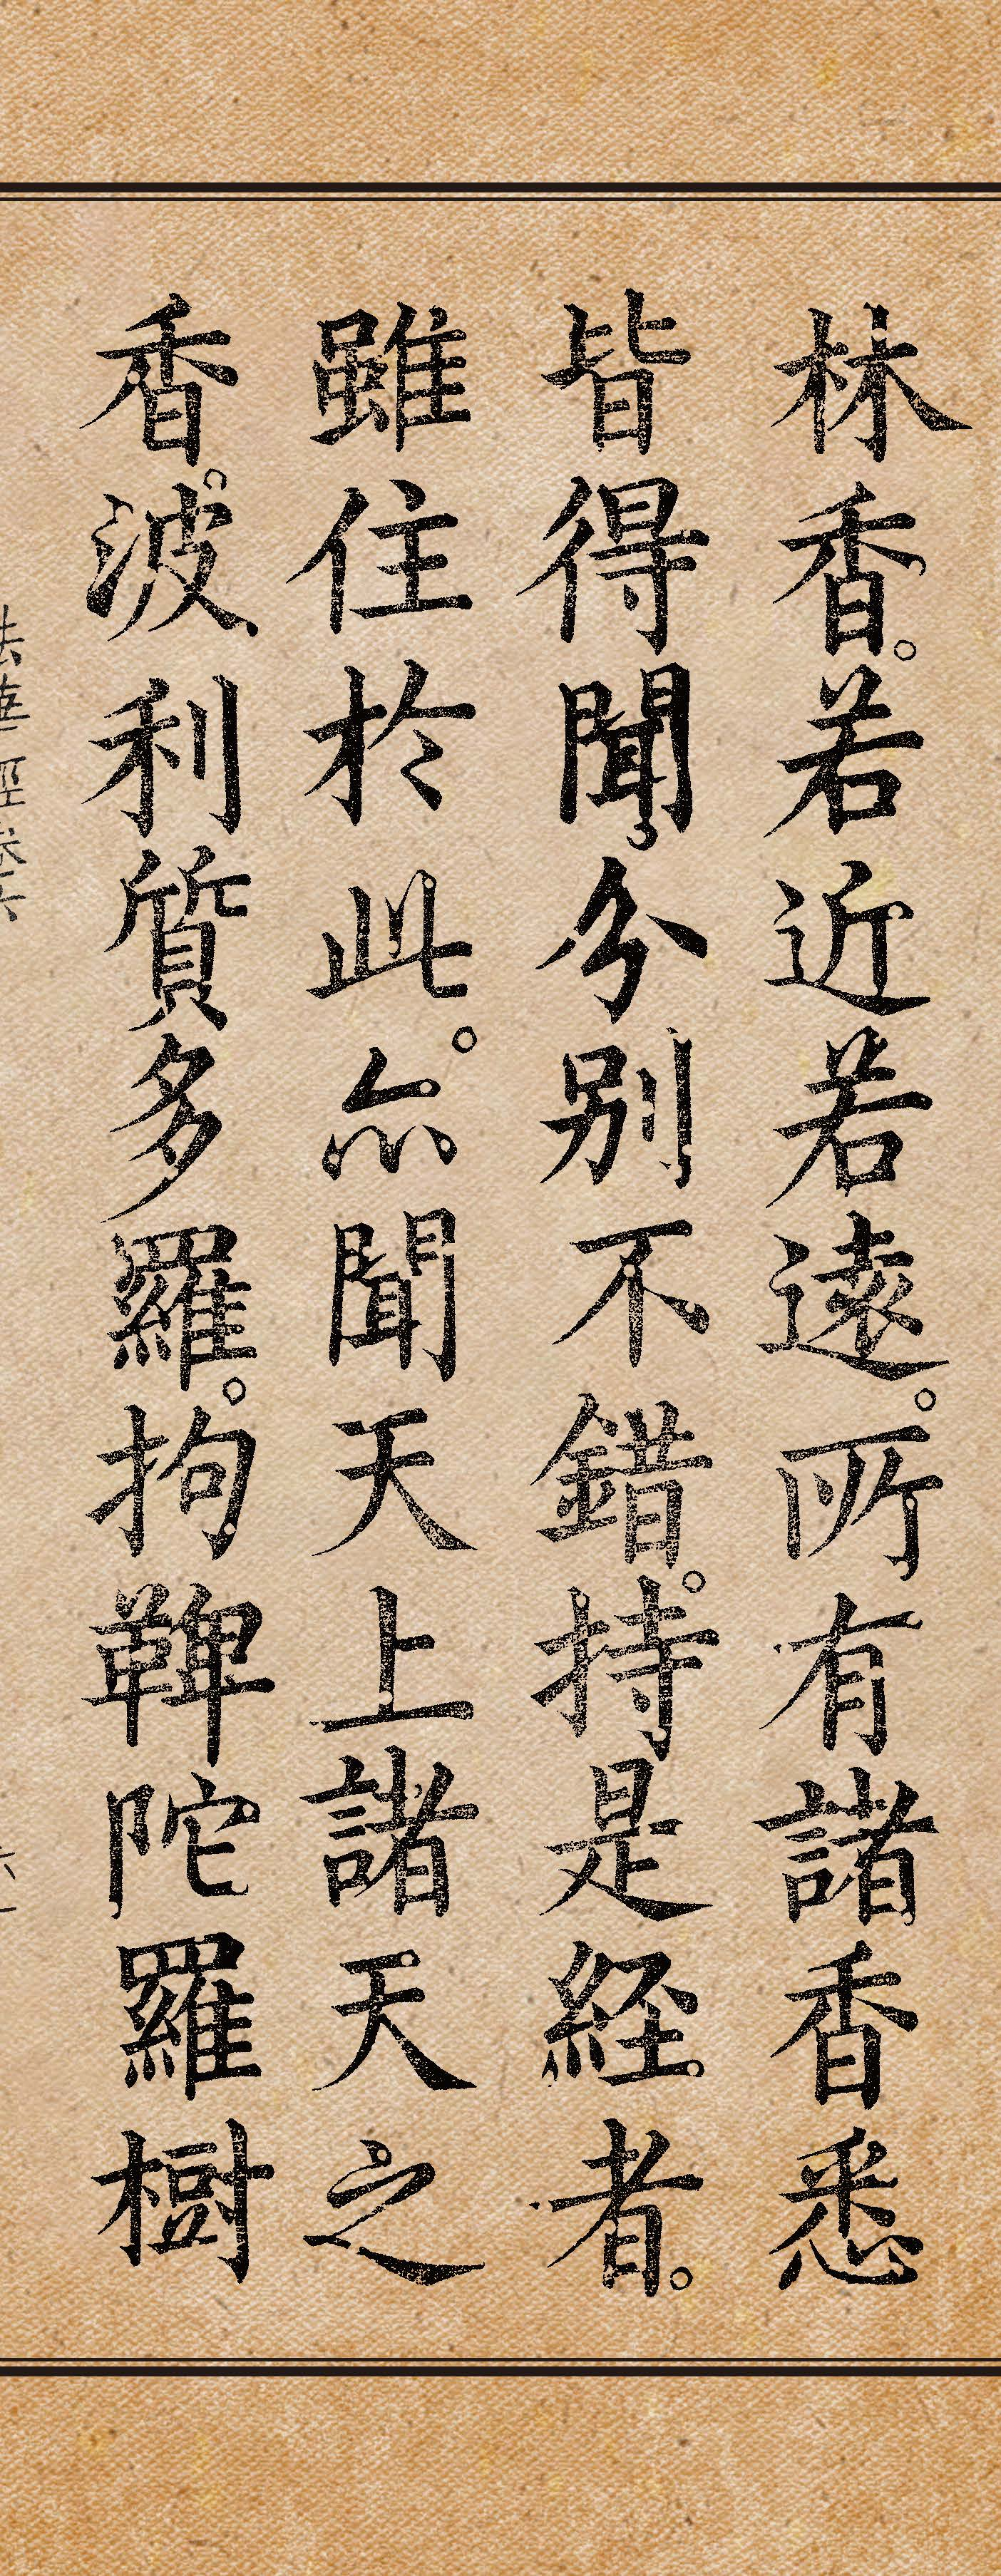 林香。若近若遠。所有諸香悉
皆得聞分别不錯。持是経者。
雖住於此。亦聞天上諸天之
香。波利質多羅。拘鞞陀羅樹